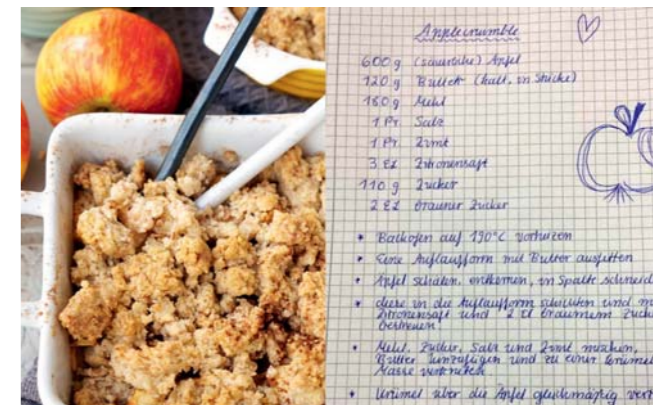 Applecrumble
600 g (säuerliche) Äpfel
120 g Butter (kalt, in Stücke)
180 g Mehl
1 Pr. Salz
1 Pr. Zimt
3 EL Zitronensaft
110 g Zucker
2 EL brauner Zucker
• Backofen auf 190°C vorheizen
• Eine Auflaufform mit Butter ausfetten
• Äpfel schälen, entkernen, in Spalte schneid
• diese in die Auflaufform schichten und m
Zitronensaft und 2 EL braunem Zuck
bestreuen
• Mehl, Zucker, Salz und Zimt mischen,
Butter hinzufügen und zu einer Krümel
Masse verkneten
• Krümel über die Äpfel gleichmäßig vert